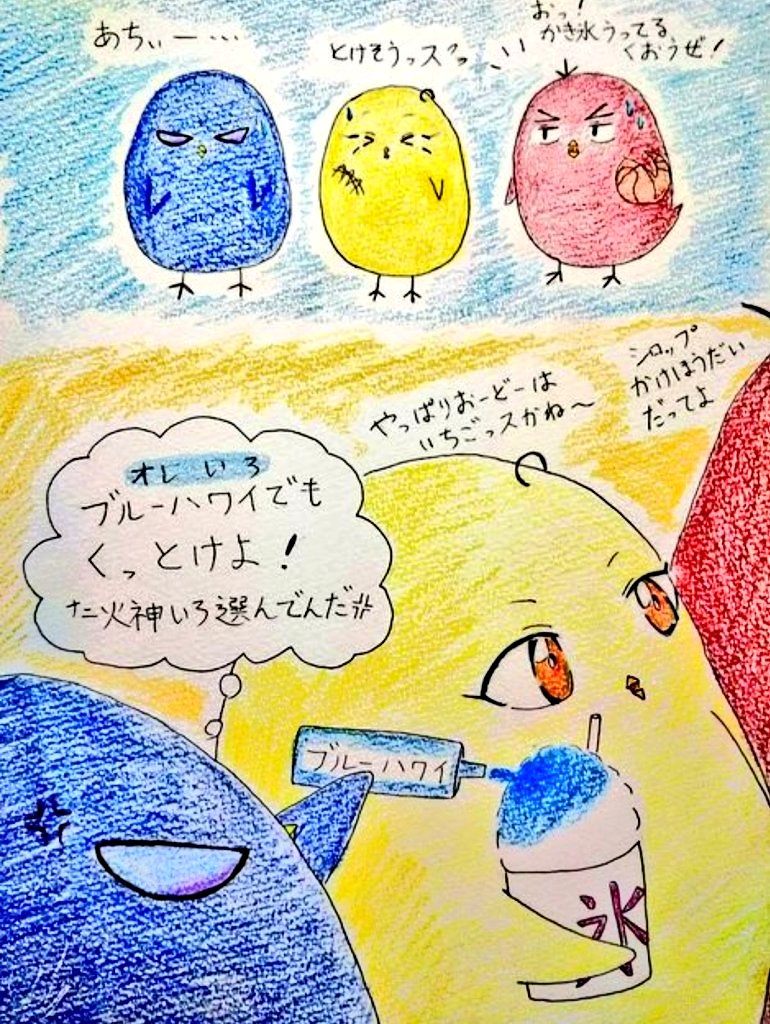 あちぃー…
とけそうっス〜
おっ!
かき氷うってる
くおうぜ!
シロップ
かけほうだい
だってよ
やっぱりおーどーは
いちごっスかね〜
オレいろ
ブルーハワイでも
くっとけよ!
ナニ火神いろ選んでんだ
ブルーハワイ
氷